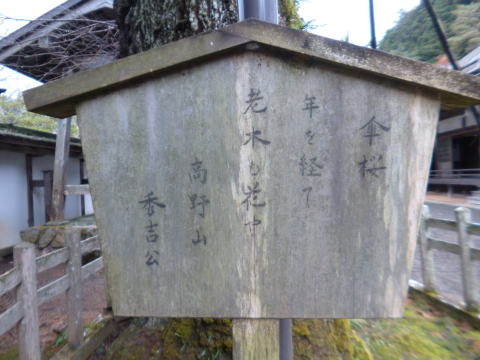 傘桜
年を経て
老木も花や
高野山
秀吉公